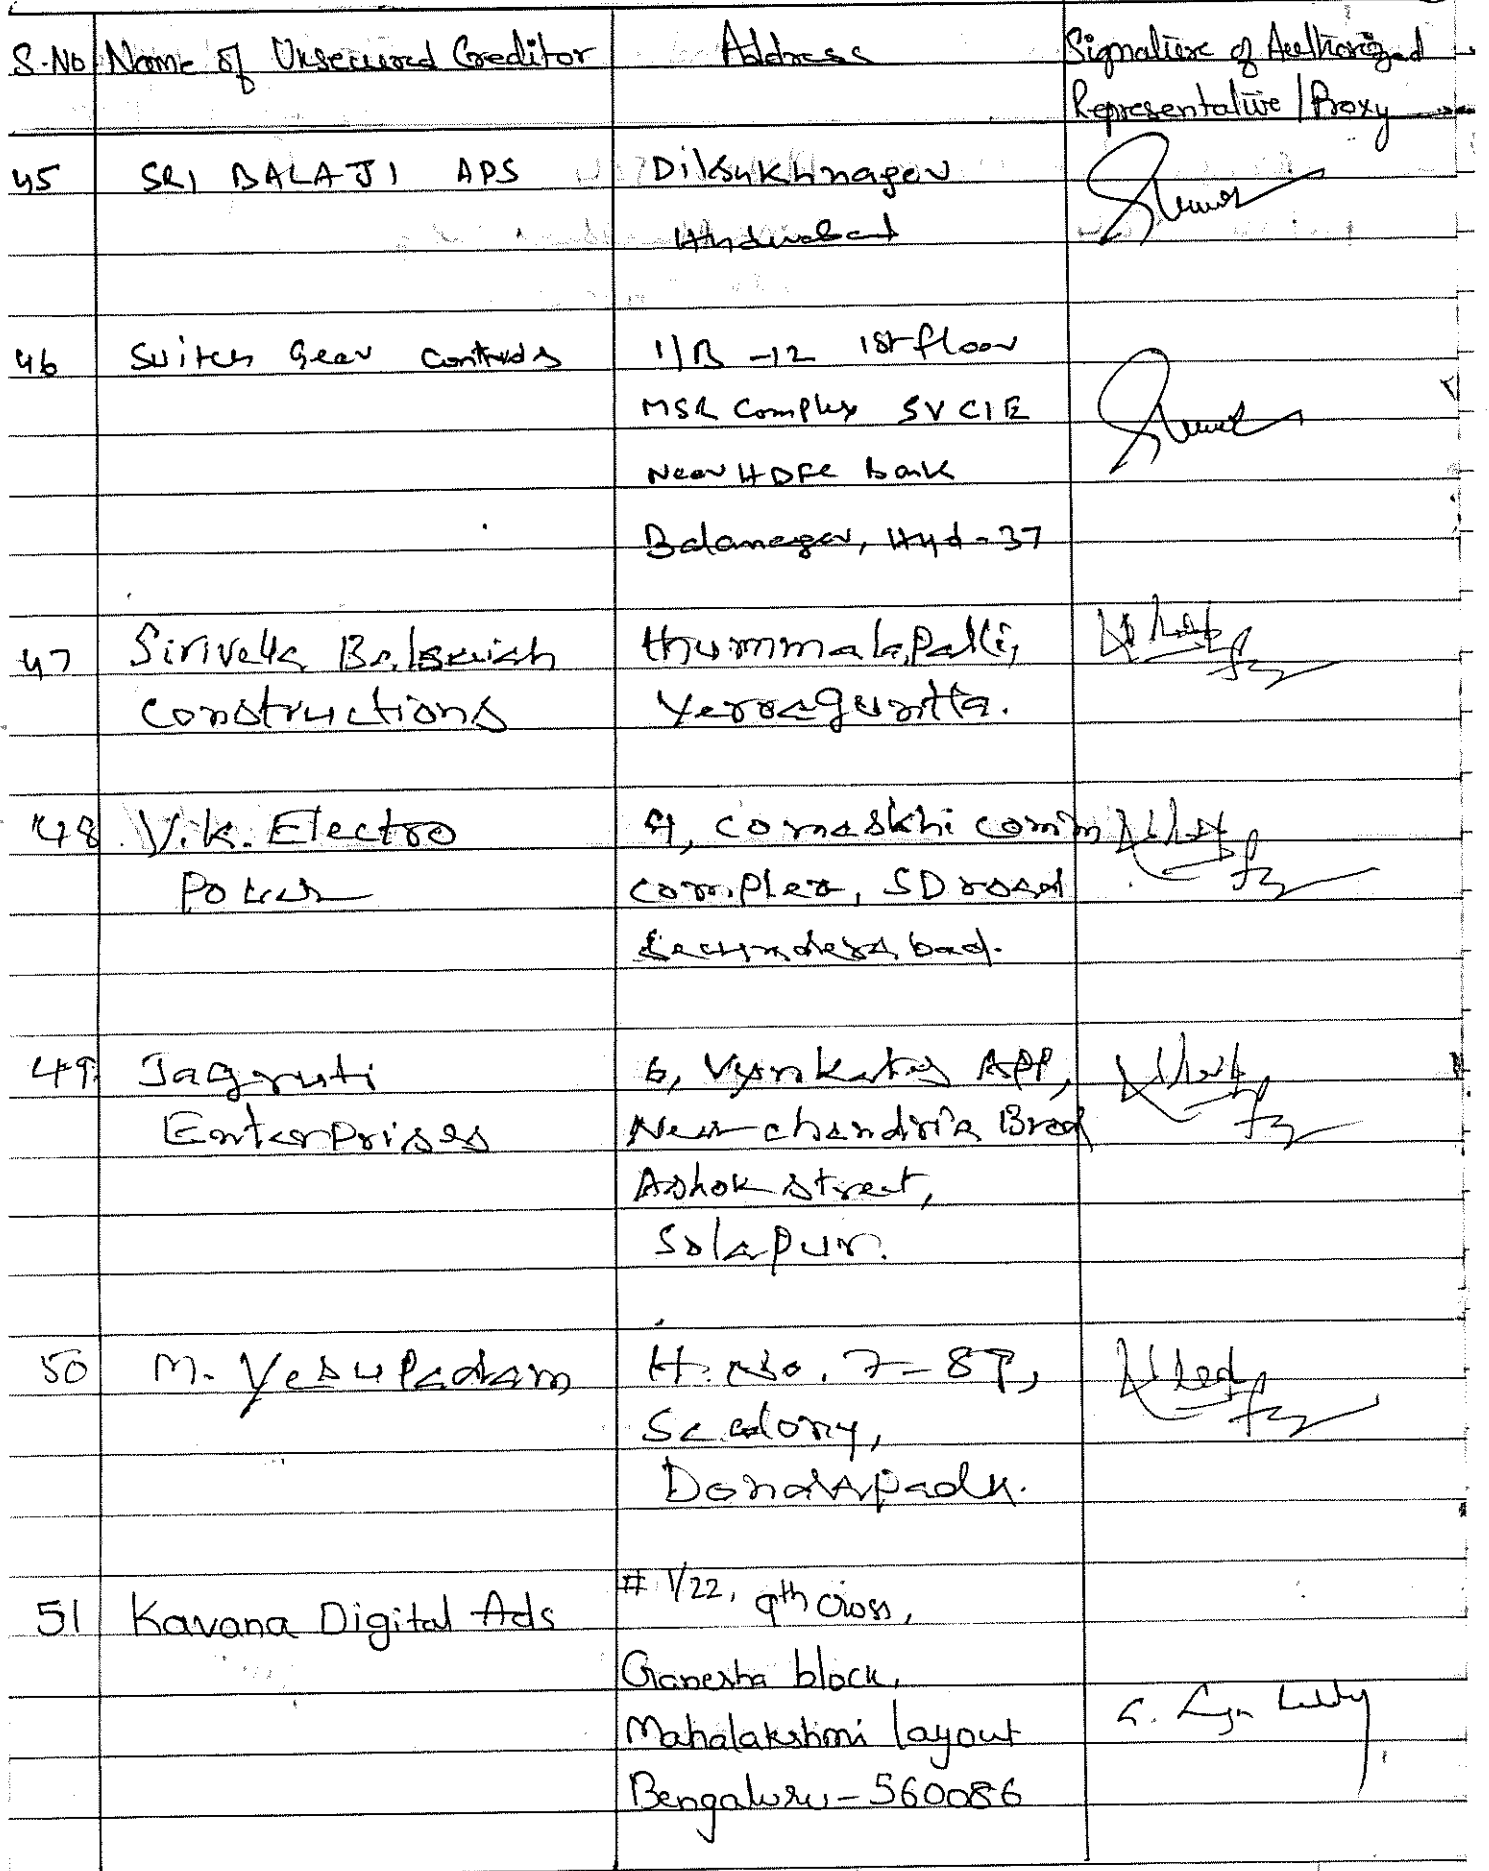 S.No Name of Unsecured Creditor Address Signature of Authorized
Representative / Proxy
45 SRI BALAJI APS Dilsukhnagar
Hyderabad
46 Switch Gear Controls 1/B -12 1st floor
MSR Complex SVCIE
Near HDFC bank
Balanagar, Hyd-37
47 Sirivella Balswiah thummalapalli,
Constructions Yerraguntla.
48. V.K. Electro 9, comaskhi comm
Power complex, SD road
Secunderabad.
49. Jagruti 6, Vyankatesh APP,
Enterprises Near chandria Brod
Ashok street,
Solapur.
50 M. Yesupadam H. No. 7-87,
Sc colony,
Dondapadu.
51 Kavana Digital Ads # 1/22, 9th cross,
Ganesha block,
Mahalakshmi layout
Bengaluru - 560086